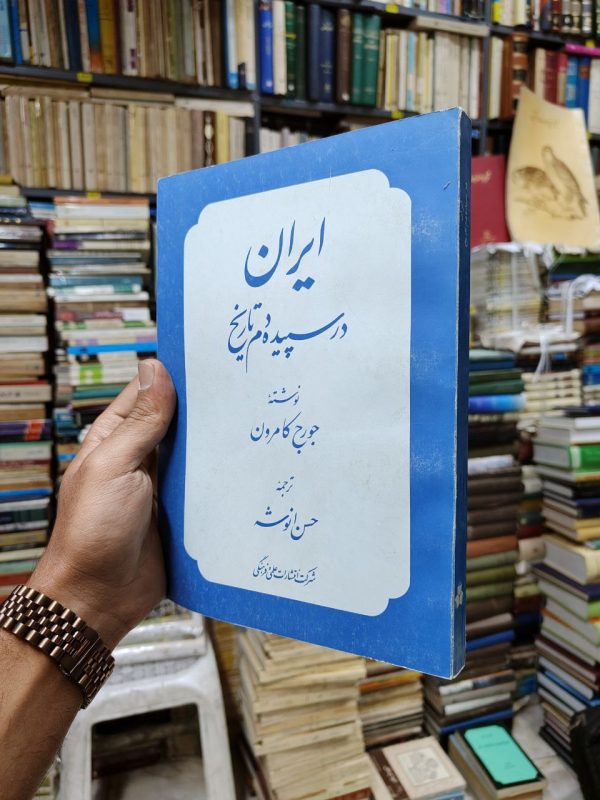 ایران
در سپیده دم تاریخ
نوشتهٔ
جورج کامرون
ترجمهٔ
حسن انوشه
شرکت انتشارات علمی و فرهنگی